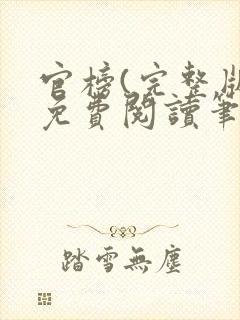 官榜(完整版
免費閱讀筆
踏雪無塵